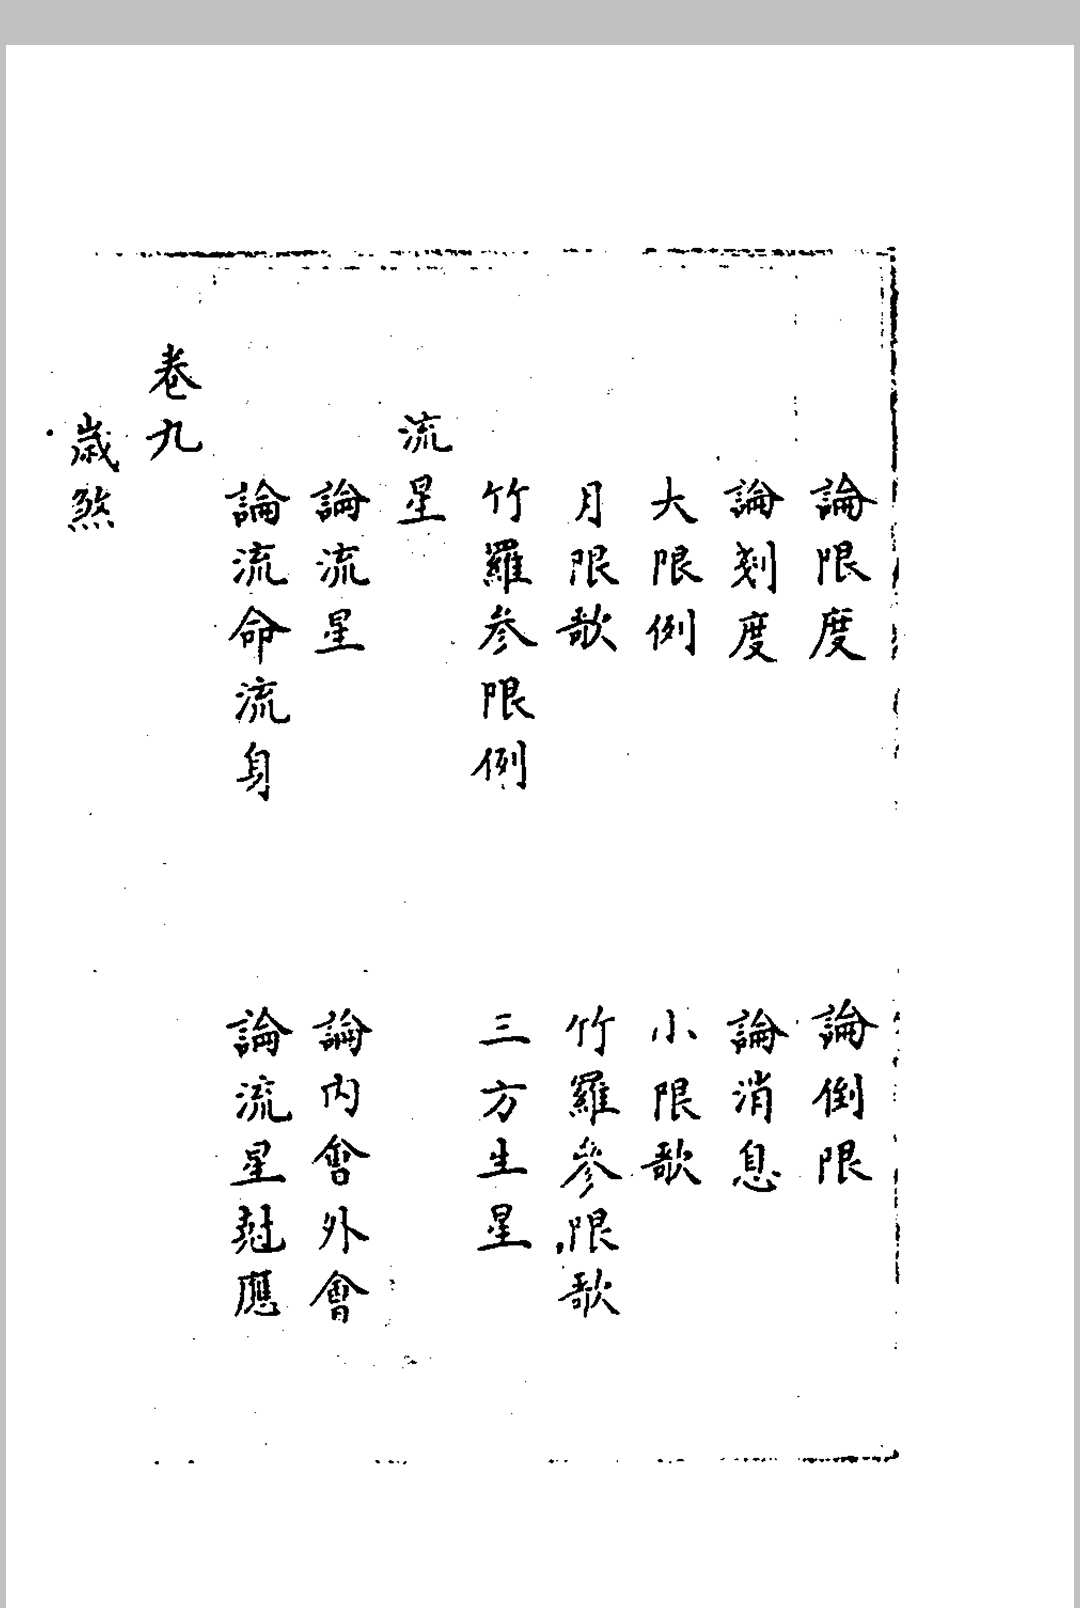 論限度　論倒限
論刻度　論消息
大限例　小限歌
月限歌　竹羅參限歌
竹羅參限例　三方生星
流星
論流星　論內會外會
論流命流身　論流星尅應
卷九
歲煞